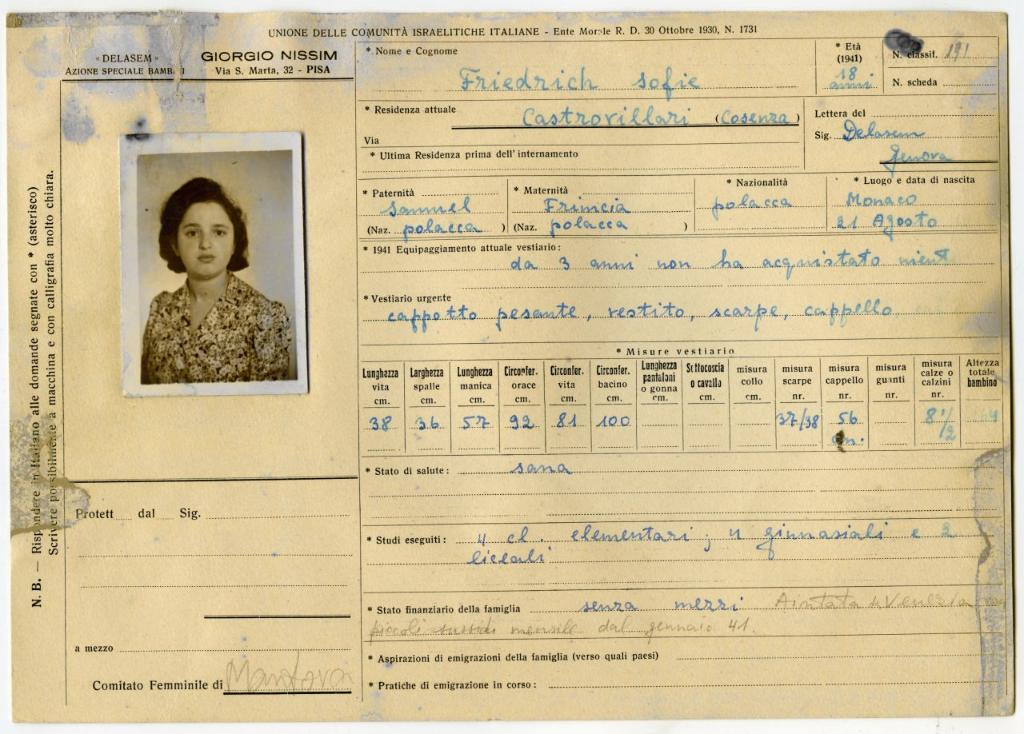 UNIONE DELLE COMUNITÀ ISRAELITICHE ITALIANE - Ente Morale R. D. 30 Ottobre 1930, N. 1731
« DELASEM »
AZIONE SPECIALE BAMBINI
GIORGIO NISSIM
Via S. Marta, 32 - PISA
* Nome e Cognome
Friedrich Sofie
* Età (1941)
18 anni
N. classif. 191
N. scheda
* Residenza attuale Castrovillari (Cosenza)
Via
* Ultima Residenza prima dell'internamento
Lettera del
Sig. Delasem
Genova
* Paternità
Samuel
(Naz. polacca )
* Maternità
Frimcia
(Naz. polacca )
* Nazionalità
polacca
* Luogo e data di nascita
Monaco
21 Agosto
* 1941 Equipaggiamento attuale vestiario:
da 3 anni non ha acquistato nient
* Vestiario urgente
cappotto pesante, vestito, scarpe, cappello
* Misure vestiario
Lunghezza vita cm. 38
Larghezza spalle cm. 36
Lunghezza manica cm. 57
Circonfer. orace cm. 92
Circonfer. vita cm. 81
Circonfer. bacino cm. 100
Lunghezza pantaloni o gonna cm.
Sottocoscia o cavallo cm.
misura collo cm.
misura scarpe nr. 37/38
misura cappello nr. 56 cm.
misura guanti nr.
misura calze o calzini nr. 8 1/2
Altezza totale bambino
* Stato di salute: sana
* Studi eseguiti: 4 cl. elementari; 4 ginnasiali e 2
liceali
* Stato finanziario della famiglia senza mezzi Aiutata da Venezia con
piccoli sussidi mensile dal gennaio 41.
* Aspirazioni di emigrazioni della famiglia (verso quali paesi)
* Pratiche di emigrazione in corso:
Protett dal Sig.
a mezzo
Comitato Femminile di Mantova
N. B. — Rispondere in Italiano alle domande segnate con * (asterisco)
Scrivere possibilmente a macchina e con calligrafia molto chiara.